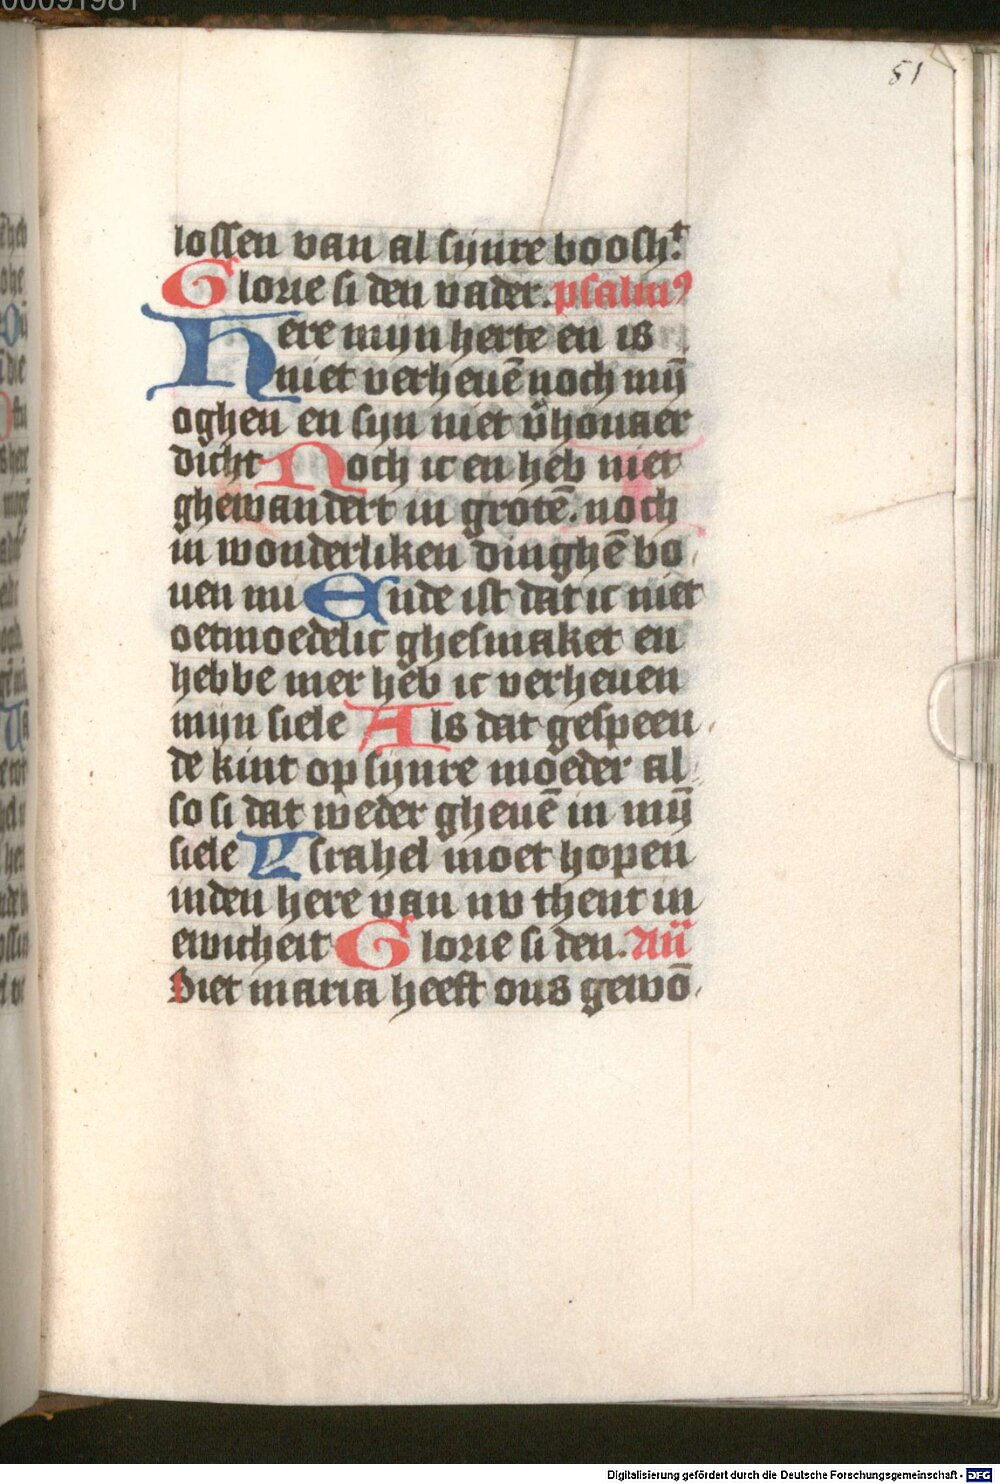 51
lossen van al sijnre boosh.t
Glorie si den vader. psalmꝰ
Here mijn herte en is
niet verheuē noch mijn̄
oghen en sijn niet v̄honaer
dicht Noch ic en heb niet
ghewandert in grotē. noch
in wonderliken dinghē bo
uen mi Ende ist dat ic niet
oetmoedelic ghesmaket en
hebbe mer heb ic verheuen
mijn siele Als dat gespeen
de kint op sijnre moeder al
so si dat weder gheuē in mijn̄
siele Ysrahel moet hopen
inden here van nv thent in
ewicheit Glorie si den. An̄
Siet maria heeft ons gewō
Digitalisierung gefördert durch die Deutsche Forschungsgemeinschaft - DFG